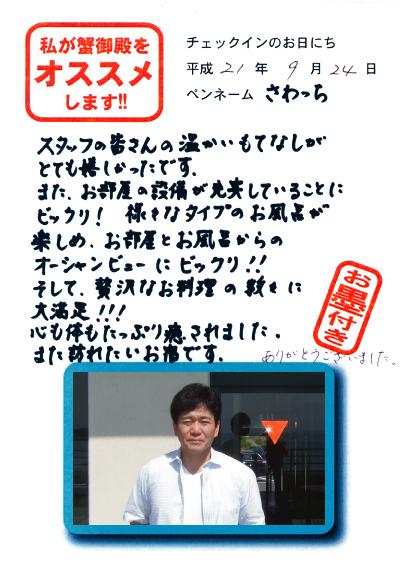 私が蟹御殿を
オススメ
します!!
チェックインのお日にち
平成 21 年 9 月 24 日
ペンネーム さわっち
スタッフの皆さんの温かいもてなしが
とても嬉しかったです。
また、お部屋の設備が充実していることに
ビックリ! 様々なタイプのお風呂が
楽しめ、お部屋とお風呂からの
オーシャンビューにビックリ!!
そして、贅沢なお料理の数々に
大満足!!!
心も体もたっぷり癒されました。
また訪れたいお宿です。
お墨付き
ありがとうございました。